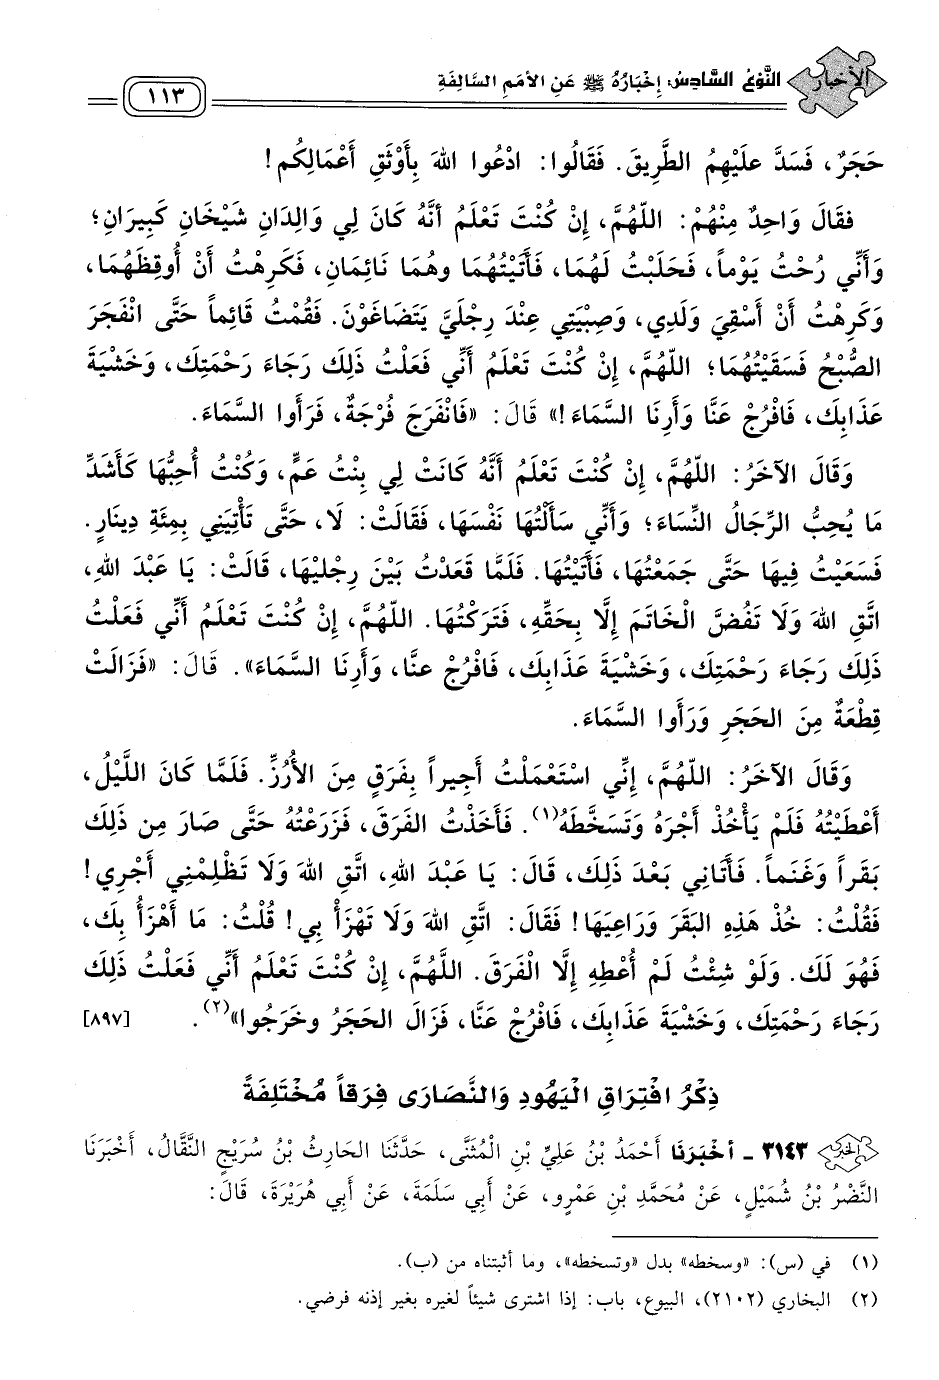 الأخبار
النَّوْعُ السَّادِسُ: إِخْبَارُهُ ﷺ عَنِ الأُمَمِ السَّالِفَةِ
١١٣
حَجَرٌ، فَسَدَّ عَلَيْهِمُ الطَّرِيقَ. فَقَالُوا: ادْعُوا اللهَ بِأَوْثَقِ أَعْمَالِكُم!
فقَالَ وَاحِدٌ مِنْهُمْ: اللّهُمَّ، إِنْ كُنْتَ تَعْلَمُ أنَّهُ كَانَ لِي وَالِدَانِ شَيْخَانِ كَبِيرَانِ؛
وَأَنِّي رُحْتُ يَوْماً، فَحَلَبْتُ لَهُمَا، فَأَتَيْتُهُمَا وهُمَا نَائِمَانِ، فَكَرِهْتُ أَنْ أُوقِظَهُمَا،
وَكَرِهْتُ أَنْ أَسْقِيَ وَلَدِي، وَصِبْيَتِي عِنْدَ رِجْلَيَّ يَتَضَاغَوْنَ. فَقُمْتُ قَائِماً حَتَّى انْفَجَرَ
الصُّبْحُ فَسَقَيْتُهُمَا؛ اللّهُمَّ، إِنْ كُنْتَ تَعْلَمُ أَنِّي فَعَلْتُ ذَلِكَ رَجَاءَ رَحْمَتِكَ، وَخَشْيَةَ
عَذَابِكَ، فَافْرُجْ عَنَّا وَأَرِنَا السَّمَاءَ!» قَالَ: «فَانْفَرَجَ فُرْجَةٌ، فَرَأَوا السَّمَاءَ.
وَقَالَ الآخَرُ: اللّهُمَّ، إِنْ كُنْتَ تَعْلَمُ أَنَّهُ كَانَتْ لِي بِنْتُ عَمٍّ، وَكُنْتُ أُحِبُّهَا كَأَشَدِّ
مَا يُحِبُّ الرِّجَالُ النِّسَاءَ؛ وَأَنِّي سَأَلْتُهَا نَفْسَهَا، فَقَالَتْ: لَا، حَتَّى تَأْتِيَنِي بِمِئَةِ دِينَارٍ.
فَسَعَيْتُ فِيهَا حَتَّى جَمَعْتُهَا، فَأَتَيْتُهَا. فَلَمَّا قَعَدْتُ بَيْنَ رِجْلَيْهَا، قَالَتْ: يَا عَبْدَ اللهِ،
اتَّقِ اللهَ وَلَا تَفُضَّ الْخَاتَمَ إِلَّا بِحَقِّهِ، فَتَرَكْتُهَا. اللّهُمَّ، إِنْ كُنْتَ تَعْلَمُ أَنِّي فَعَلْتُ
ذَلِكَ رَجَاءَ رَحْمَتِكَ، وَخَشْيَةَ عَذَابِكَ، فَافْرُجْ عنَّا، وَأَرِنَا السَّمَاءَ». قَالَ: «فَزَالَتْ
قِطْعَةٌ مِنَ الحَجَرِ وَرَأَوا السَّمَاءَ.
وَقَالَ الآخَرُ: اللّهُمَّ، إِنِّي اسْتَعْمَلْتُ أَجِيراً بِفَرَقٍ مِنَ الأَرُزِّ. فَلَمَّا كَانَ اللَّيْلُ،
أَعْطَيْتُهُ فَلَمْ يَأْخُذْ أَجْرَهُ وَتَسَخَّطَهُ(١). فَأَخَذْتُ الفَرَقَ، فَزَرَعْتُهُ حَتَّى صَارَ مِن ذَلِكَ
بَقَراً وَغَنَماً. فَأَتَانِي بَعْدَ ذَلِكَ، قَالَ: يَا عَبْدَ اللهِ، اتَّقِ اللهَ وَلَا تَظْلِمْنِي أَجْرِي!
فَقُلْتُ: خُذْ هَذِهِ البَقَرَ وَرَاعِيَهَا! فَقَالَ: اتَّقِ اللهَ وَلَا تَهْزَأْ بِي! قُلْتُ: مَا أَهْزَأُ بِكَ،
فَهُوَ لَكَ. وَلَوْ شِئْتُ لَمْ أُعْطِهِ إِلَّا الْفَرَقَ. اللّهُمَّ، إِنْ كُنْتَ تَعْلَمُ أَنِّي فَعَلْتُ ذَلِكَ
رَجَاءَ رَحْمَتِكَ، وَخَشْيَةَ عَذَابِكَ، فَافْرُجْ عَنَّا، فَزَالَ الحَجَرُ وخَرَجُوا»(٢). [٨٩٧]
ذِكْرُ افْتِرَاقِ اليَهُودِ وَالنَّصَارَى فِرَقاً مُخْتَلِفَةً
الخبر ٣١٤٣ - أخْبَرَنَا أَحْمَدُ بْنُ عَلِيِّ بْنِ الْمُثَنَّى، حَدَّثَنَا الحَارِثُ بْنُ سُرَيْجٍ النَّقَّالُ، أَخْبَرَنَا
النَّضْرُ بْنُ شُمَيْلٍ، عَنْ مُحَمَّدِ بْنِ عَمْرٍو، عَنْ أَبِي سَلَمَةَ، عَنْ أَبِي هُرَيْرَةَ، قَالَ:
(١) في (س): «وسخطه» بدل «وتسخطه»، وما أثبتناه من (ب).
(٢) البخاري (٢١٠٢)، البيوع، باب: إذا اشترى شيئاً لغيره بغير إذنه فرضي.